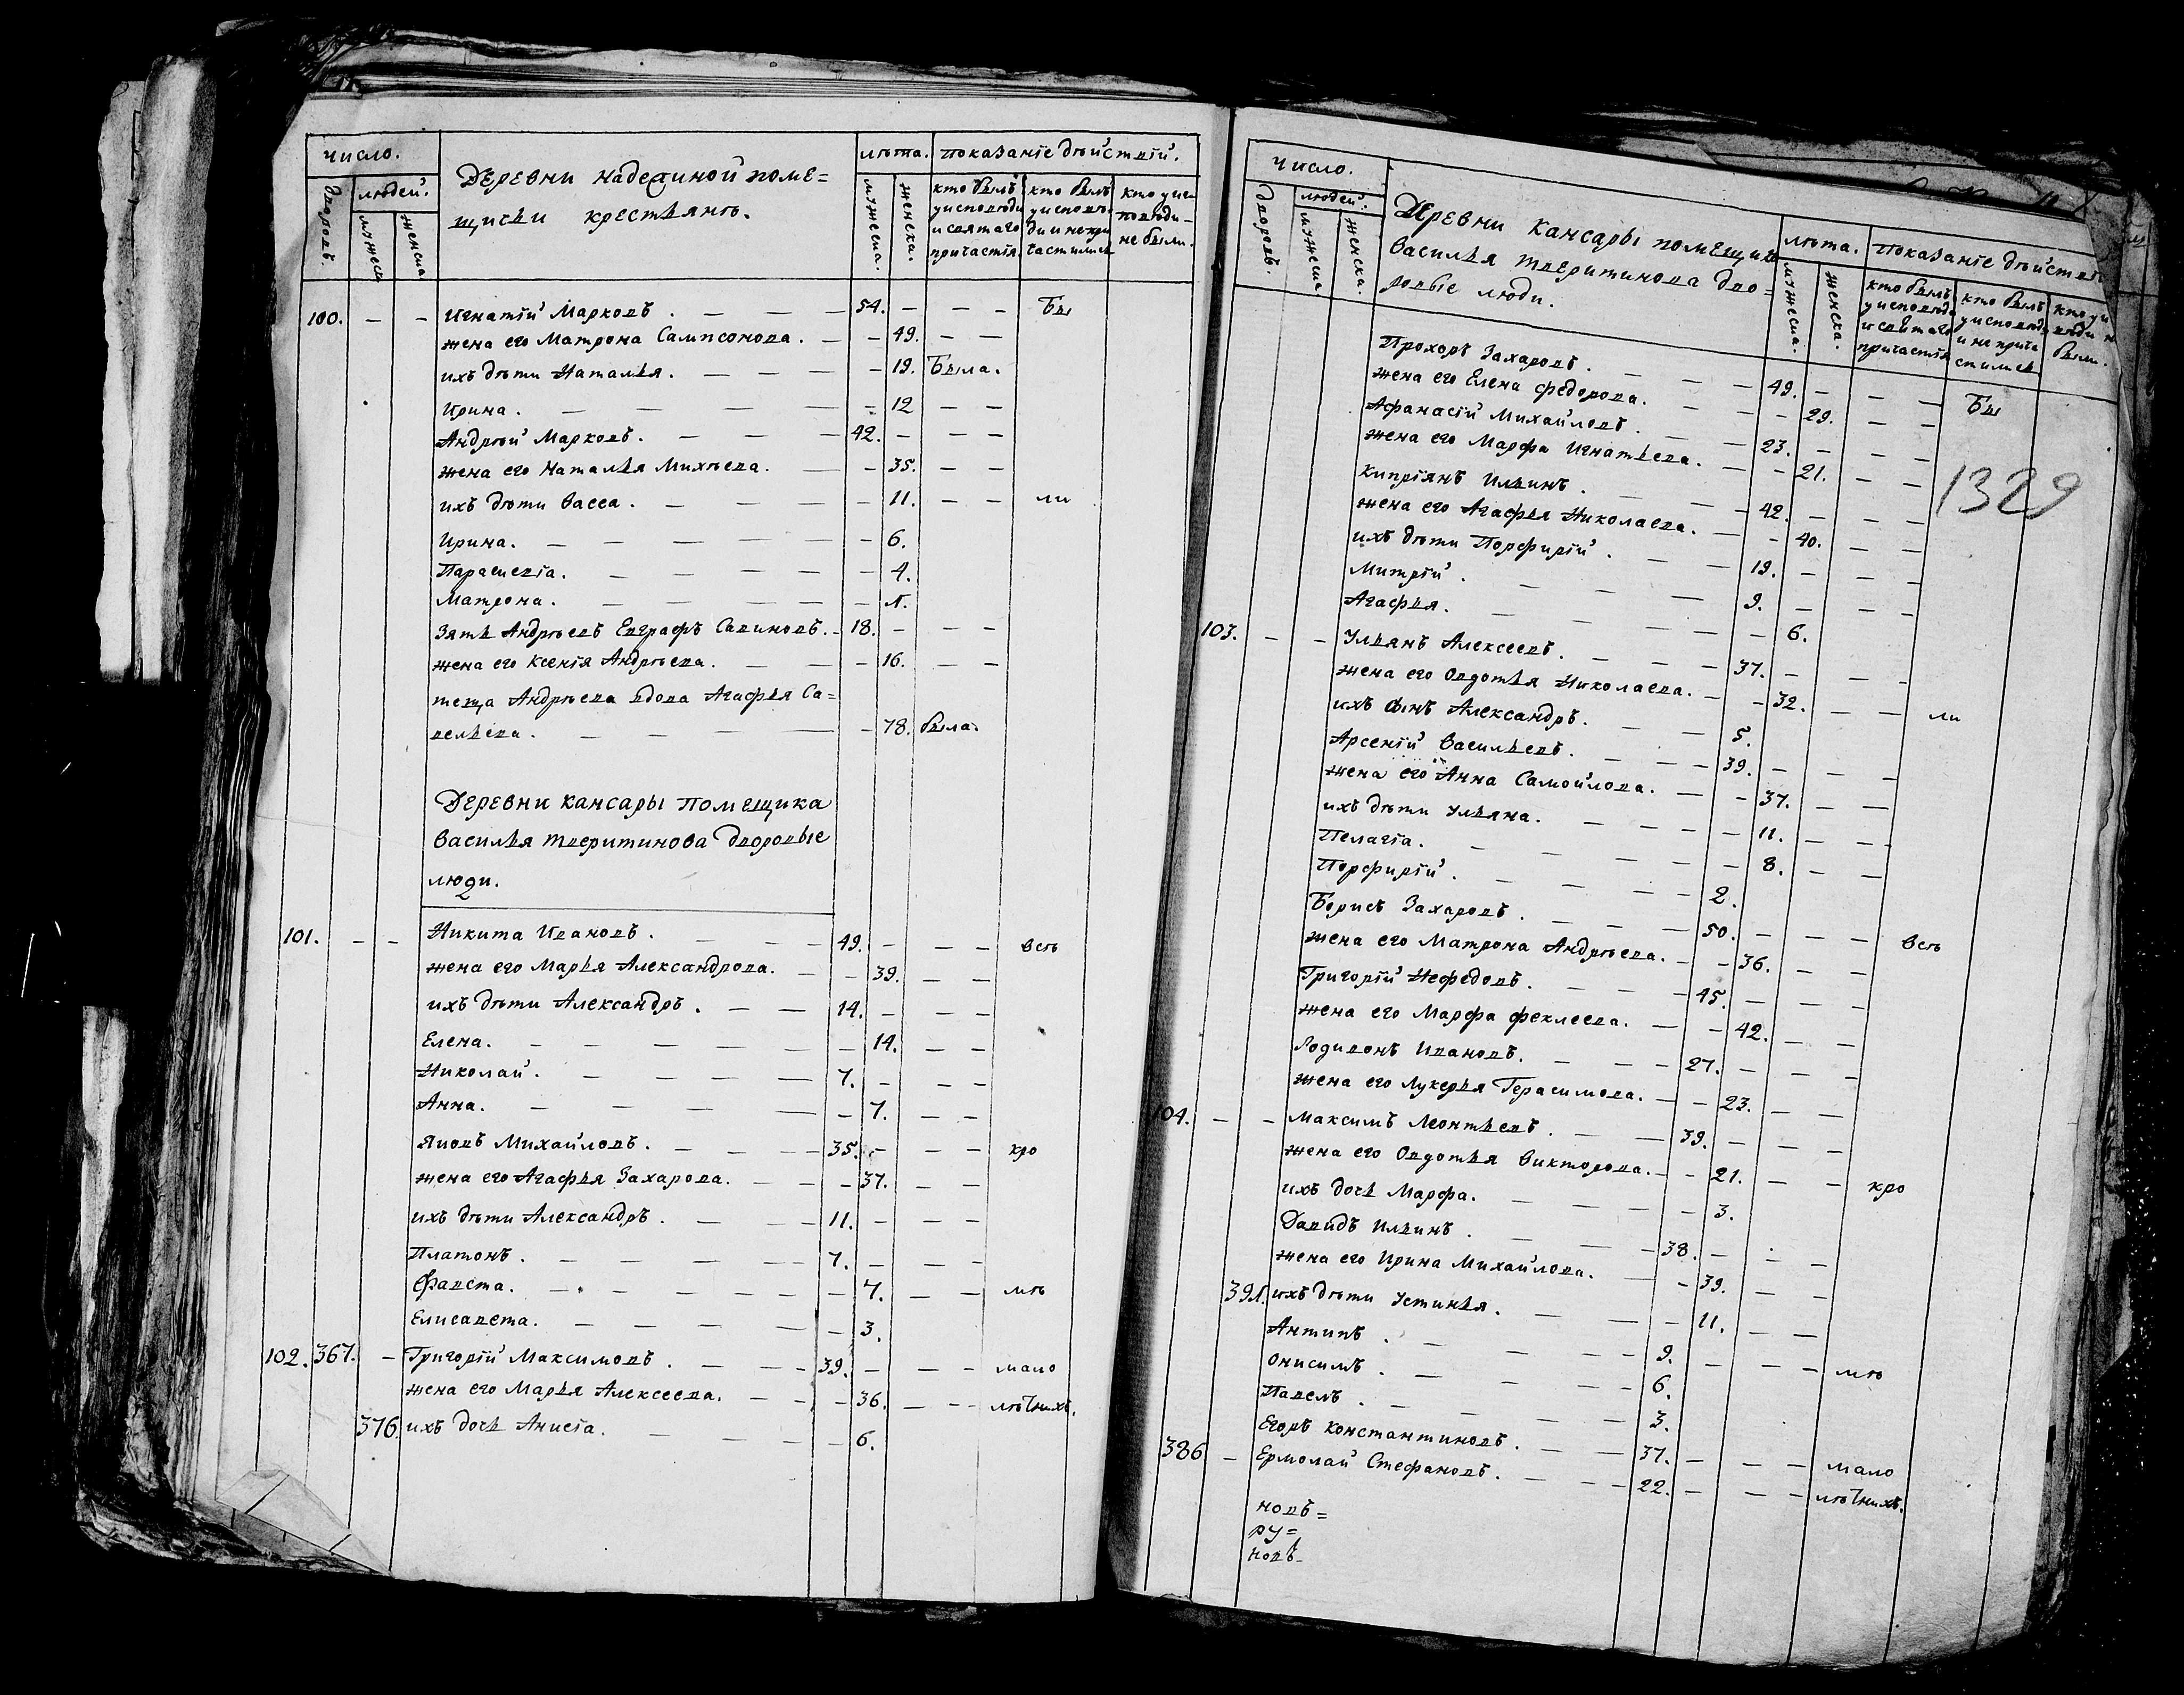 число. лѣта. показанїе дѣйствїй.
дворовъ. людей.
мужеска женска.
Деревни надеждиной помѣ=
щичьи крестьянъ.
мужеска. женска.
кто былъ у исповѣди и святаго причастїя
кто былъ у исповѣди и не причастился
кто у исповѣди не были.
100. — — Игнатїй Марковъ. — — — 54. — — — Бы
жена его Матрона Сампсонова. — — 49. — —
ихъ дѣти Наталья. — — — — 19. Была.
Ирина. — — — — — 12 — —
Андрѣй Марковъ. — — — 42. — — —
жена его Наталья Михѣева. — — 35. — —
ихъ дѣти Васса. — — — — 11. — — ли
Ирина. — — — — — — 6.
Параскевїа. — — — — — 4.
Матрона. — — — — — 1.
зять Андрѣевъ Евграфъ Савиновъ. - 18. — — —
жена его Ксенїя Андрѣева. — — — 16. — —
теща Андрѣева вдова Агафья Са=
вельева. — — — — — 78. была.
Деревни Кансары помѣщика
Василья Тверитинова дворовые
люди.
101. — — Никита Ивановъ. — — — 49. — — — всѣ
жена его Марья Александрова. — — 39. — —
ихъ дѣти Александръ. — — 14. — — —
Елена. — — — — — — 14. — —
Николай. — — — — 7. — — —
Анна. — — — — — 7. — —
Яковъ Михайловъ. — — — — 35. — — — кро
жена его Агафья Захарова. — — — 37. — —
ихъ дѣти Александръ. — — — 11. — — —
Платонъ. — — — — — 7. — — —
Фавста. — — — — — — 7. — — мѣ
Елисавета. — — — — — 3.
102. 367. — Григорїй Максимовъ. — — — 39. — — — мало
жена его Марья Алексеева. — — — 36. — — лѣтнихъ.
376. ихъ дочь Анисїа. — — — — 6.
число. лѣта. показанїе дѣйств
дворовъ. людей.
мужеска женска.
Деревни Кансары помѣщика
Василья Тверитинова дво=
ровые люди.
мужеска. женска.
кто былъ у исповѣди и святаго причастїя
кто былъ у исповѣди и не причастился
были.
Прохоръ Захаровъ. — — — 49. — — — Бы
жена его Елена Федорова. — — — 29. — —
Афанасїй Михайловъ. — — 23. — — —
жена его Марфа Игнатьева. — — 21. — —
1329
Кипрїянъ Ильинъ. — — — 42. — — —
жена его Агафья Николаева. — — 40. — —
ихъ дѣти Порфирїй. — — — 19. — — —
Митрїй. — — — — 9. — — —
Агафья. — — — — — 6.
103. — — Ульянъ Алексеевъ. — — — 37. — — —
жена его Овдотья Николаева. — — 32. — — ли
ихъ сынъ Александръ. — — 5.
Арсенїй Васильевъ. — — — 39. — — —
жена его Анна Самойлова. — — 37. — —
ихъ дѣти Ульяна. — — — — 11. — —
Пелагїа. — — — — — 8. — —
Порфирїй. — — — — 2.
Борисъ Захаровъ. — — — 50. — — — всѣ
жена его Матрона Андрѣева. — — 36. — —
Григорїй Нефедовъ. — — — 45. — — —
жена его Марфа Феклеева. — — 42. — —
Родивонъ Ивановъ. — — — 27. — — —
жена его Лукерья Герасимова. — — 23. — —
104. — — Максимъ Леонтьевъ. — — 39. — — —
жена его Овдотья Викторова. — — 21. — — кро
ихъ дочь Марфа. — — — — 3.
Давидъ Ильинъ. — — — 38. — — —
жена его Ирина Михайлова. — — 39. — —
391. ихъ дѣти Устинья. — — — — 11. — —
Антипъ. — — — — 9. — — — мѣ
Онисимъ. — — — — 6.
Павелъ. — — — — 3.
Егоръ Константиновъ. — — 37. — — — мало
386 — Ермолай Стефановъ. — — — 22. — — — лѣтнихъ.
новъ=
ру=
новъ-